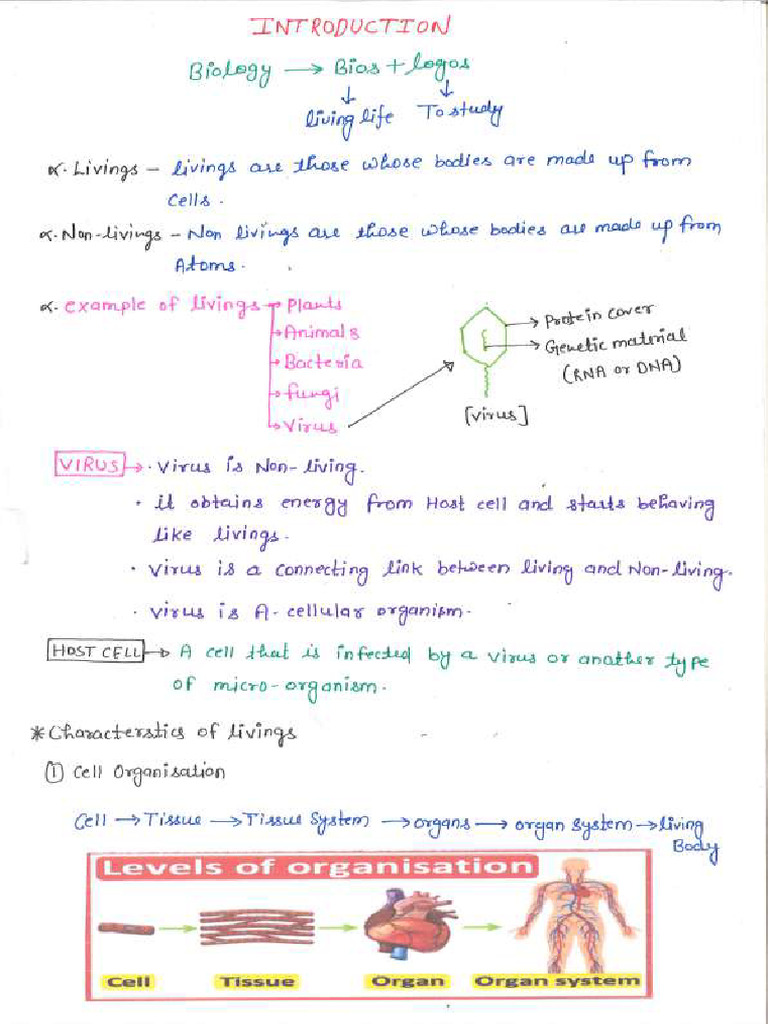 INTRODUCTION
Biology → Bios + logos
↓ ↓
living life To study
α. Livings – livings are those whose bodies are made up from
cells.
α. Non-livings – Non livings are those whose bodies are made up from
Atoms.
α. example of livings → Plants
→ Animals
→ Bacteria
→ fungi
→ Virus
→ Protein cover
→ Genetic material
(RNA or DNA)
[virus]
VIRUS → · Virus is Non-living.
· it obtains energy from Host cell and starts behaving
like livings.
· Virus is a connecting link between living and Non-living.
· Virus is A-cellular organism.
HOST CELL → A cell that is infected by a virus or another type
of micro-organism.
* Characterstics of livings
① Cell Organisation
Cell → Tissue → Tissue System → organs → organ system → living
Body
Levels of organisation
Cell Tissue Organ Organ system